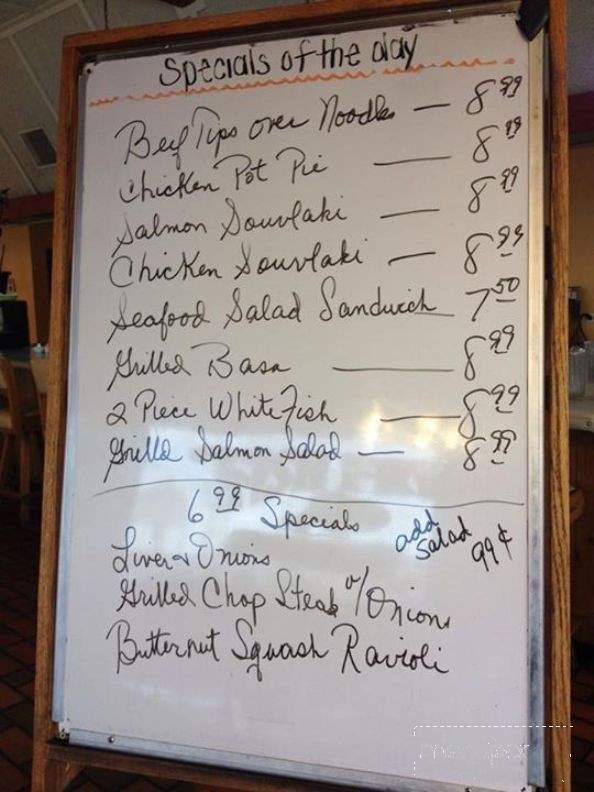 Specials of the day
Beef Tips over Noodles — 8.99
Chicken Pot Pie — 8.99
Salmon Souvlaki — 8.99
Chicken Souvlaki — 8.99
Seafood Salad Sandwich 7.50
Grilled Basa — 8.99
2 Piece White Fish — 8.99
Grilled Salmon Salad — 8.99
6.99 Specials
add salad 99¢
Liver & Onions
Grilled Chop Steak w/Onions
Butternut Squash Ravioli